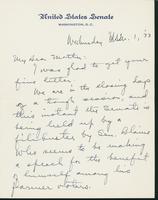 United States Senate
WASHINGTON, D.C.
Wednesday March 1, '33
My Dear Mother:
I was glad to get your
fine letter.
We are in the closing days
of a tough session, and
this instant the Senate is
being held up by a
filibuster by Sen. Blaine
who seems to be making
a speech for the benefit
of himself among his
farmer voters.